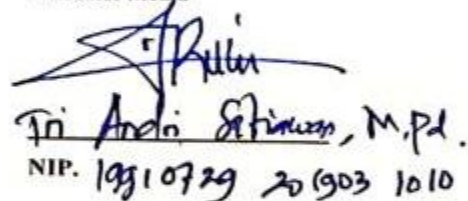 Tri Andri Setiawan, M.Pd.
NIP. 19910729 201903 1010